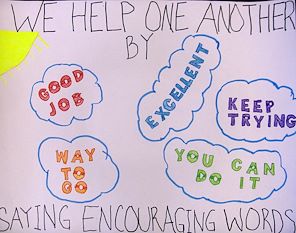 WE HELP ONE ANOTHER
BY
GOOD
JOB
EXCELLENT
KEEP
TRYING
WAY
TO
GO
YOU CAN
DO IT
SAYING ENCOURAGING WORDS